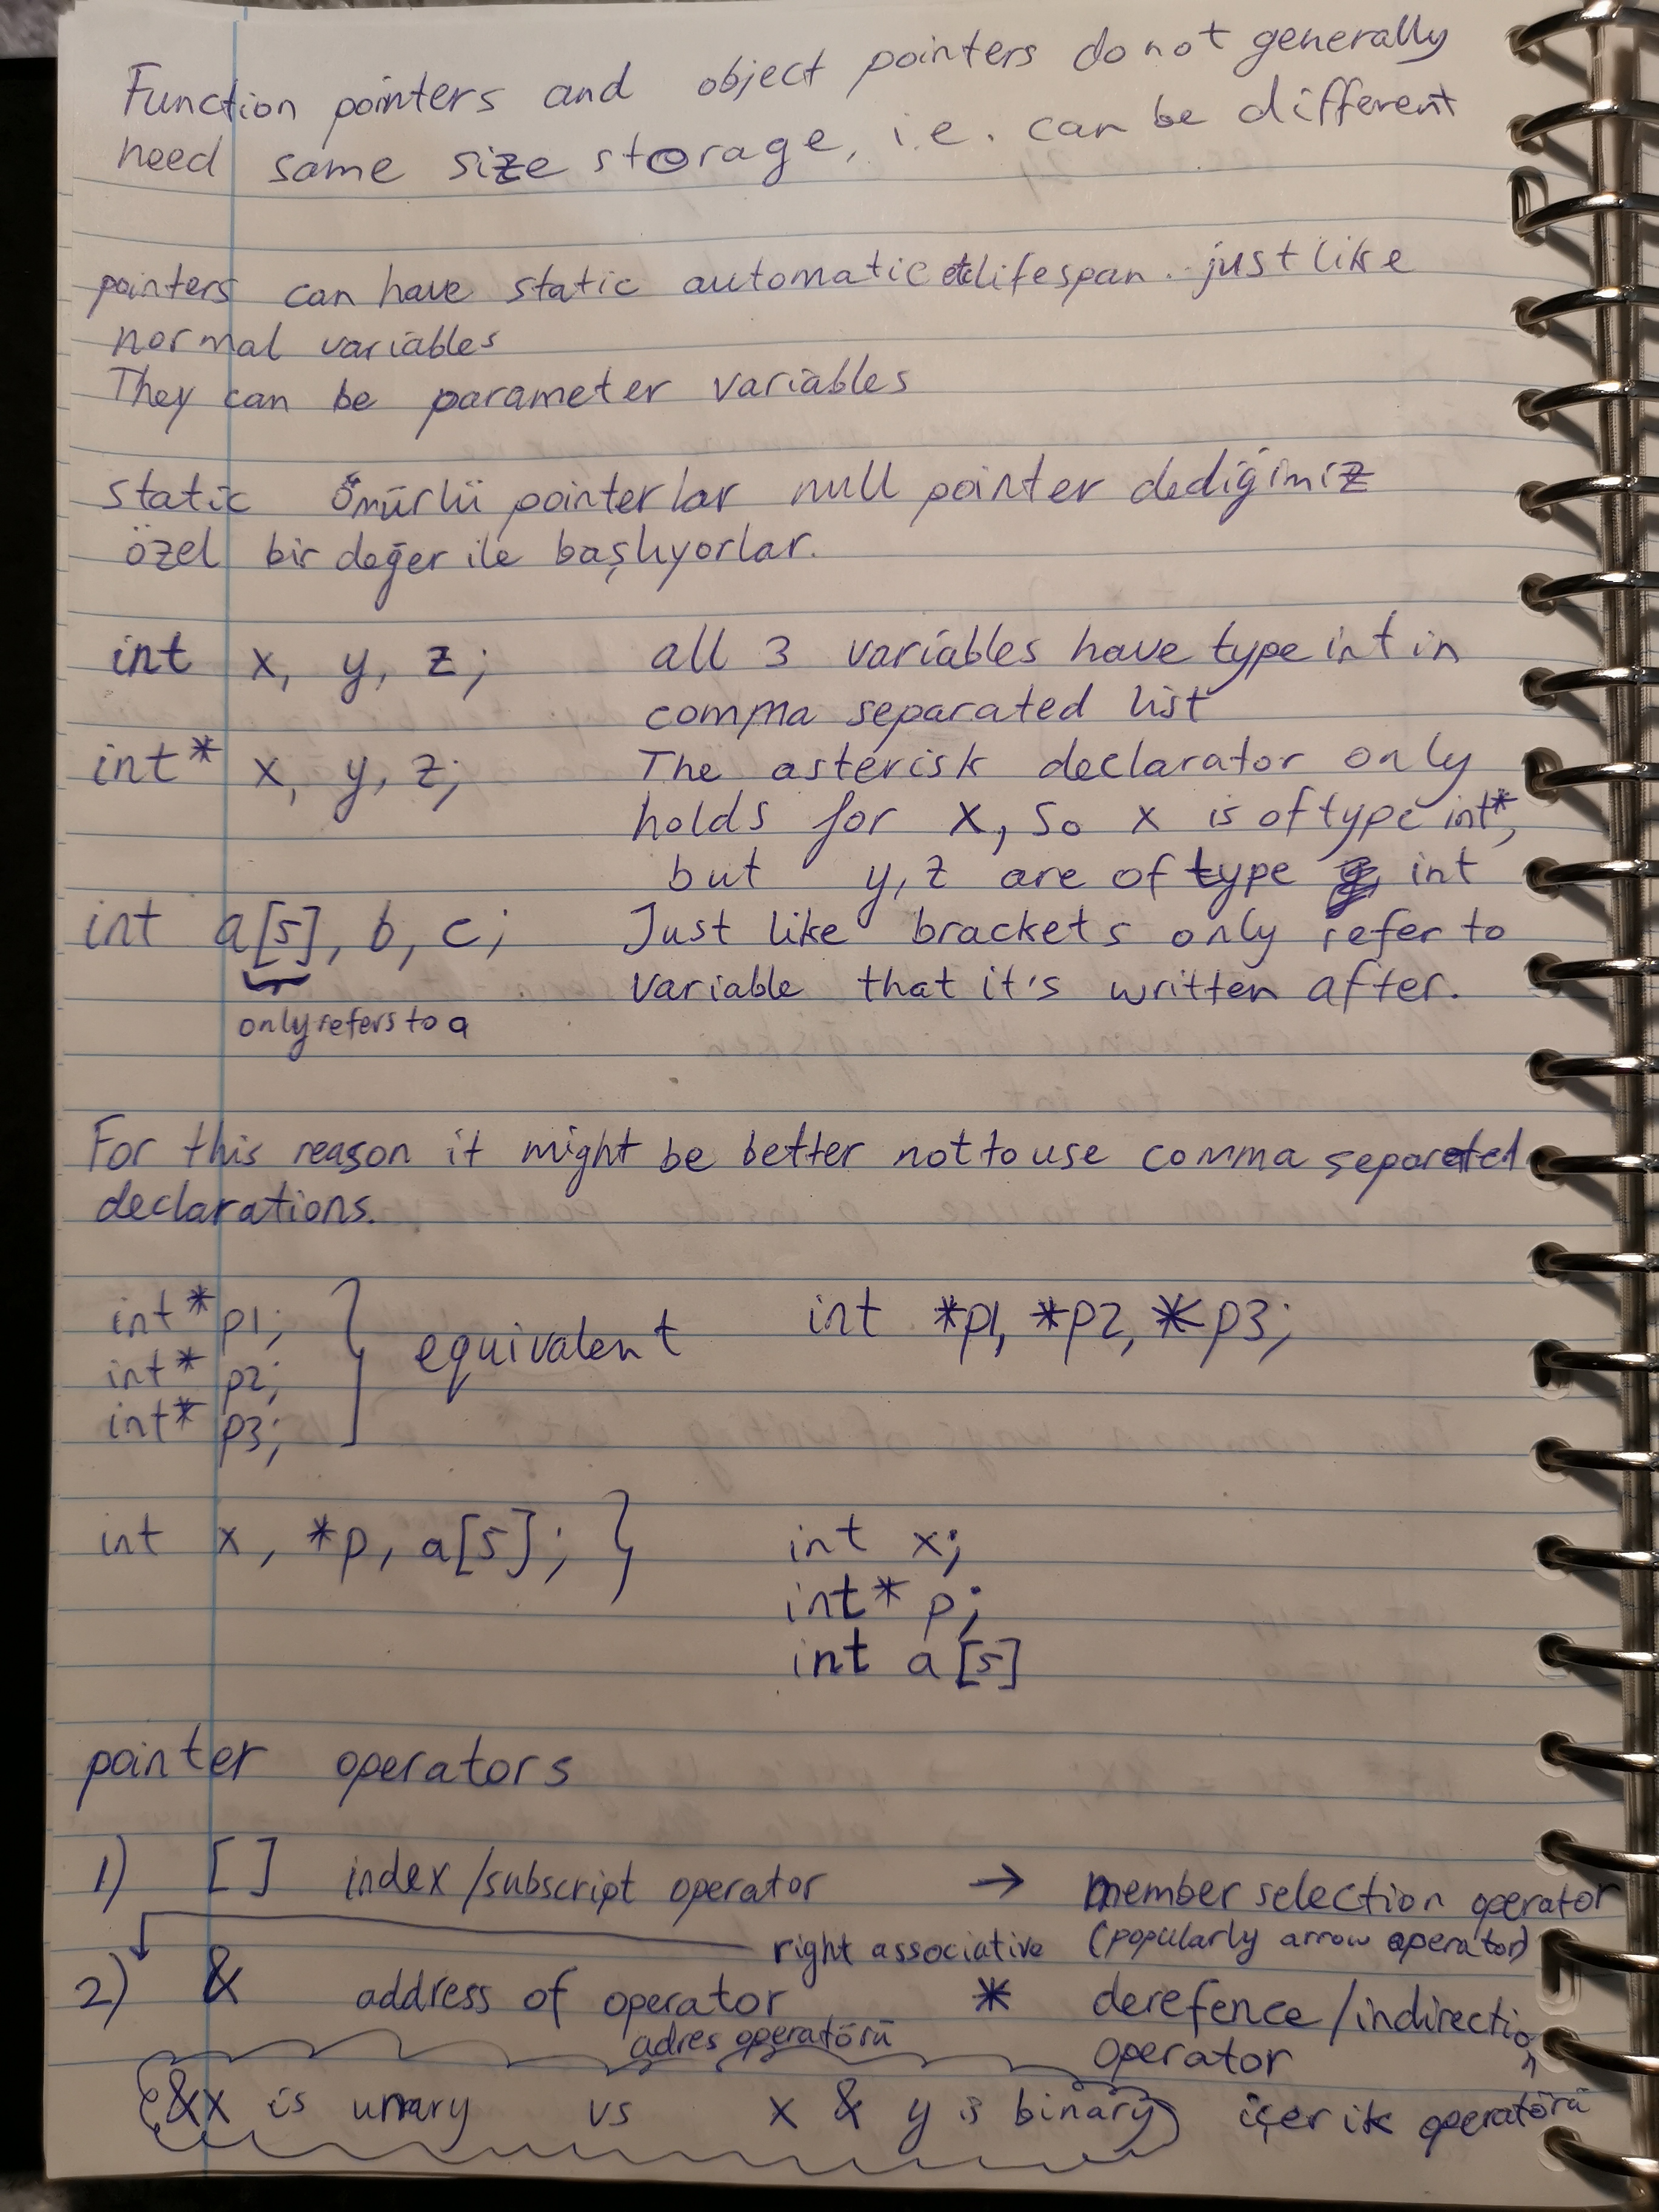 Function pointers and object pointers do not generally
need same size storage, i.e. can be different
pointers can have static automatic etc lifespan. just like
normal variables
They can be parameter variables
static ömürlü pointerlar null pointer dediğimiz
özel bir değer ile başlıyorlar.
int x, y, z; all 3 variables have type int in
comma separated list
int* x, y, z; The asterisk declarator only
holds for x, so x is of type int*,
but y, z are of type int
int a[5], b, c; Just like brackets only refer to
only refers to a variable that it's written after.
For this reason it might be better not to use comma separated
declarations.
int* p1; } equivalent int *p1, *p2, *p3;
int* p2;
int* p3;
int x, *p, a[5]; } int x;
int* p;
int a[5]
pointer operators
1) [ ] index/subscript operator → member selection operator
right associative (popularly arrow operator)
2) & address of operator * derefence/indirection
adres operatörü operator
&x is unary vs x & y is binary içerik operatörü